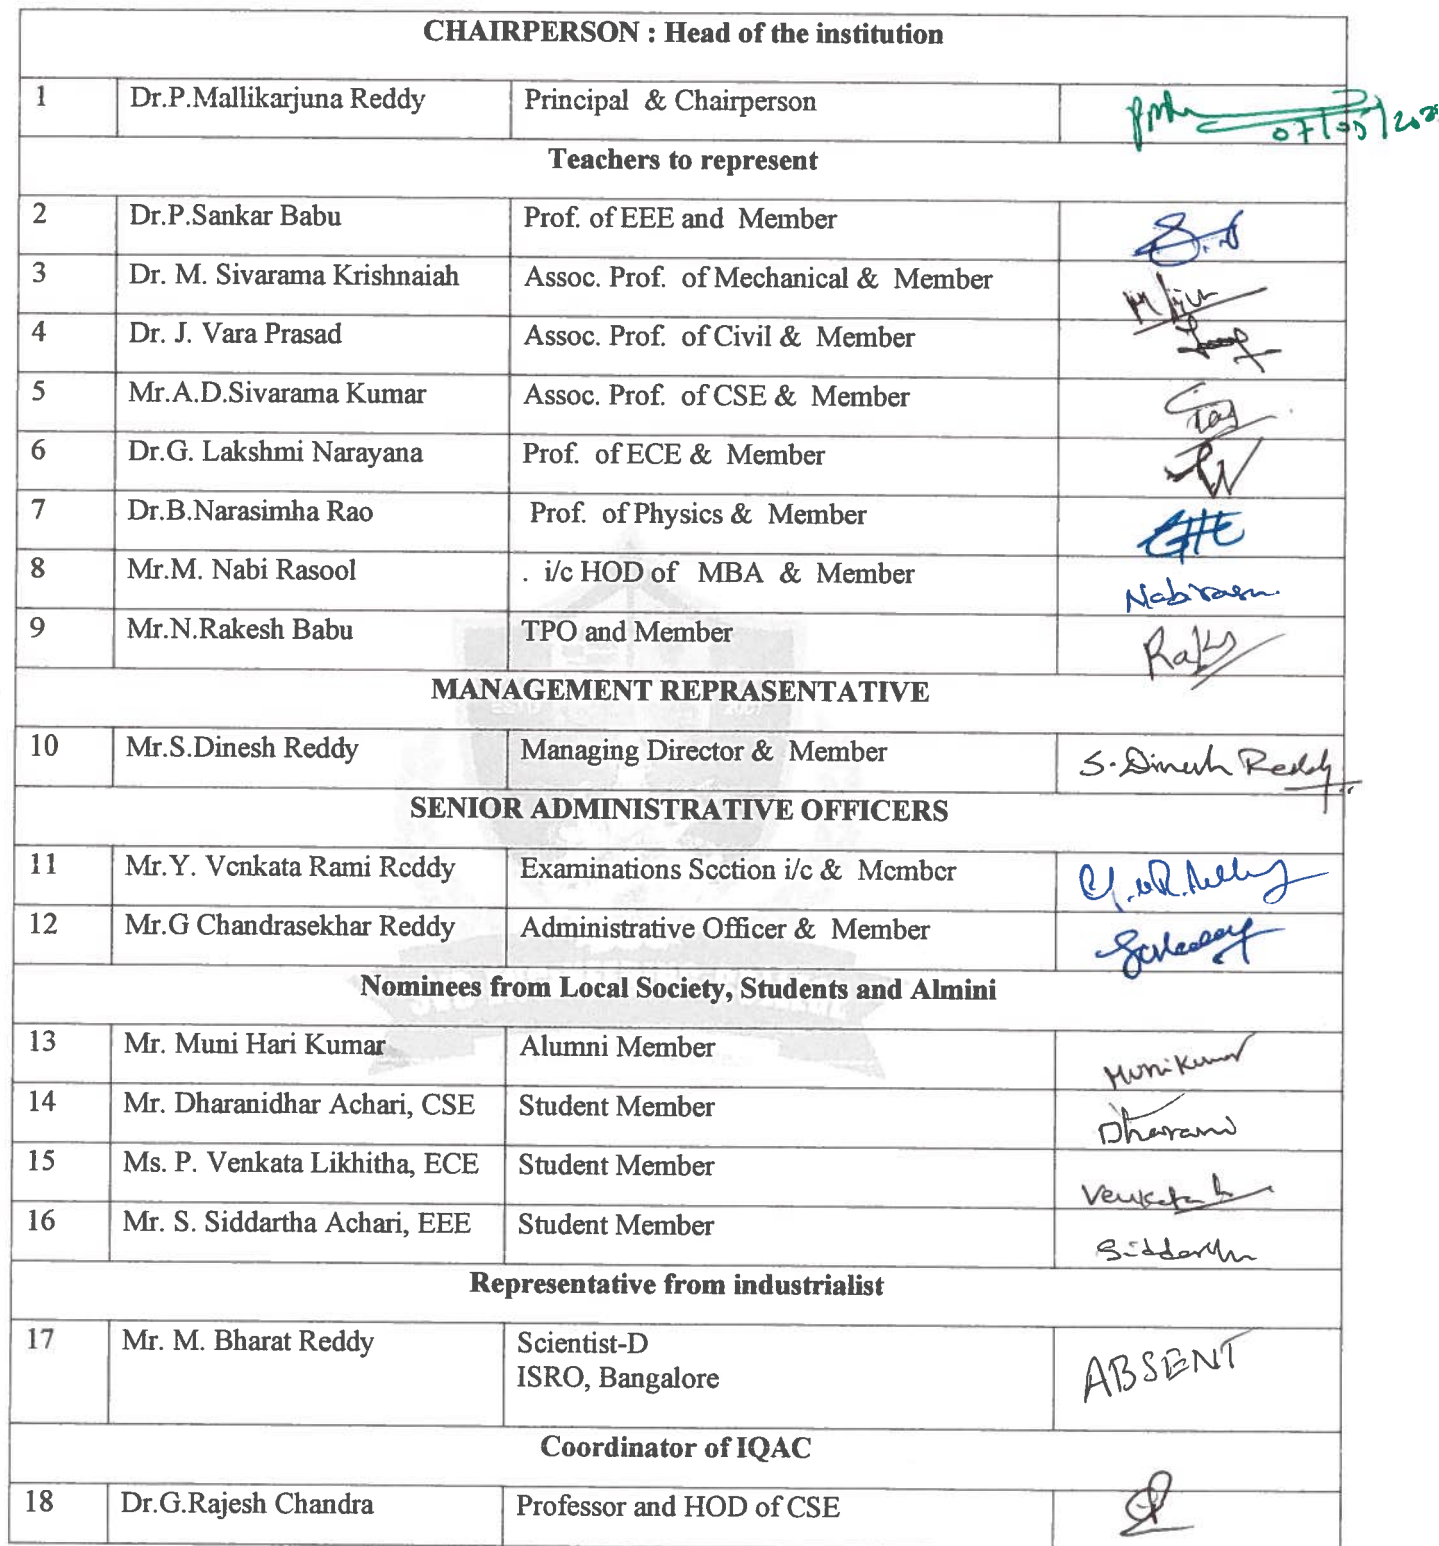 CHAIRPERSON : Head of the institution
1 Dr.P.Mallikarjuna Reddy Principal & Chairperson
07/05/202
Teachers to represent
2 Dr.P.Sankar Babu Prof. of EEE and Member
3 Dr. M. Sivarama Krishnaiah Assoc. Prof. of Mechanical & Member
4 Dr. J. Vara Prasad Assoc. Prof. of Civil & Member
5 Mr.A.D.Sivarama Kumar Assoc. Prof. of CSE & Member
6 Dr.G. Lakshmi Narayana Prof. of ECE & Member
7 Dr.B.Narasimha Rao Prof. of Physics & Member
8 Mr.M. Nabi Rasool . i/c HOD of MBA & Member
9 Mr.N.Rakesh Babu TPO and Member
MANAGEMENT REPRASENTATIVE
ESTD 2007
10 Mr.S.Dinesh Reddy Managing Director & Member S. Dinesh Reddy
SENIOR ADMINISTRATIVE OFFICERS
11 Mr.Y. Venkata Rami Reddy Examinations Section i/c & Member Y.V.R.Reddy
12 Mr.G Chandrasekhar Reddy Administrative Officer & Member
Nominees from Local Society, Students and Almini
13 Mr. Muni Hari Kumar Alumni Member Muni Kumar
14 Mr. Dharanidhar Achari, CSE Student Member Dharani
15 Ms. P. Venkata Likhitha, ECE Student Member Venkata L
16 Mr. S. Siddartha Achari, EEE Student Member Siddartha
Representative from industrialist
17 Mr. M. Bharat Reddy Scientist-D ABSENT
ISRO, Bangalore
Coordinator of IQAC
18 Dr.G.Rajesh Chandra Professor and HOD of CSE